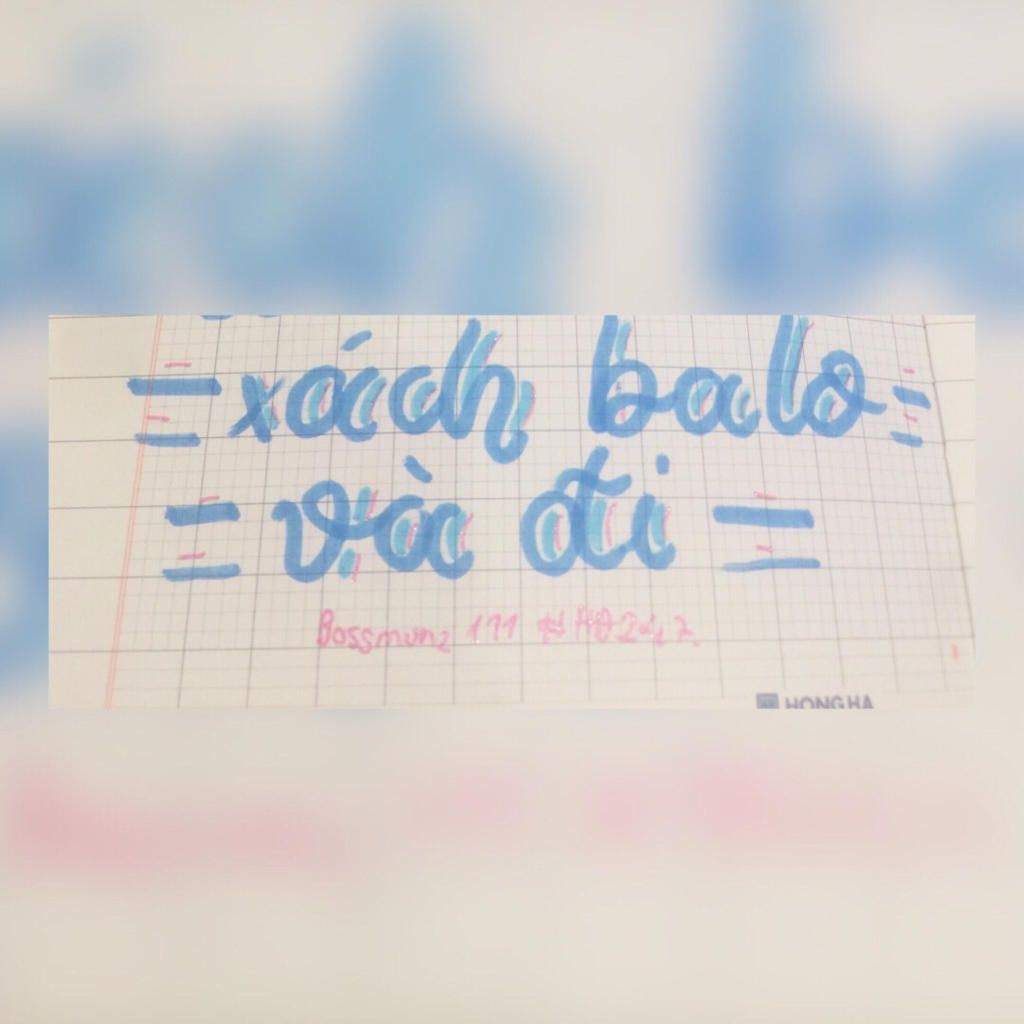 xách balo
và đi
Bossmunz 111 #HĐ247
HONG HA